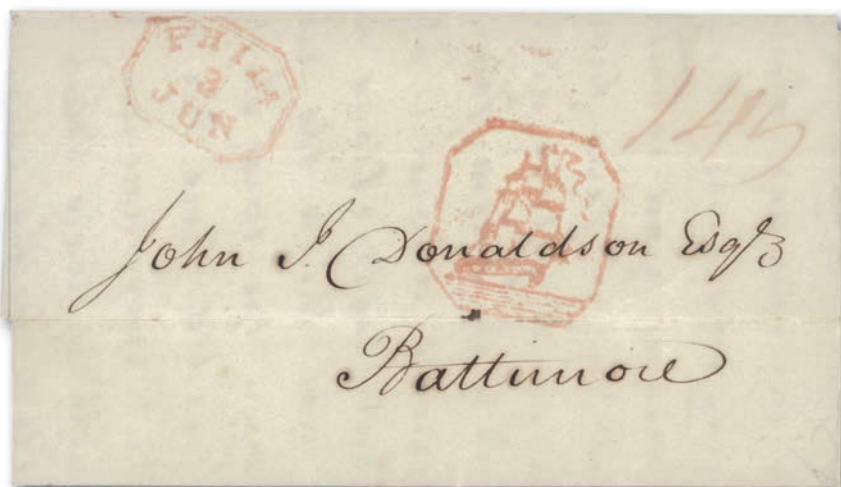 PHILA
2
JUN
John J. Donaldson Esqr
Baltimore